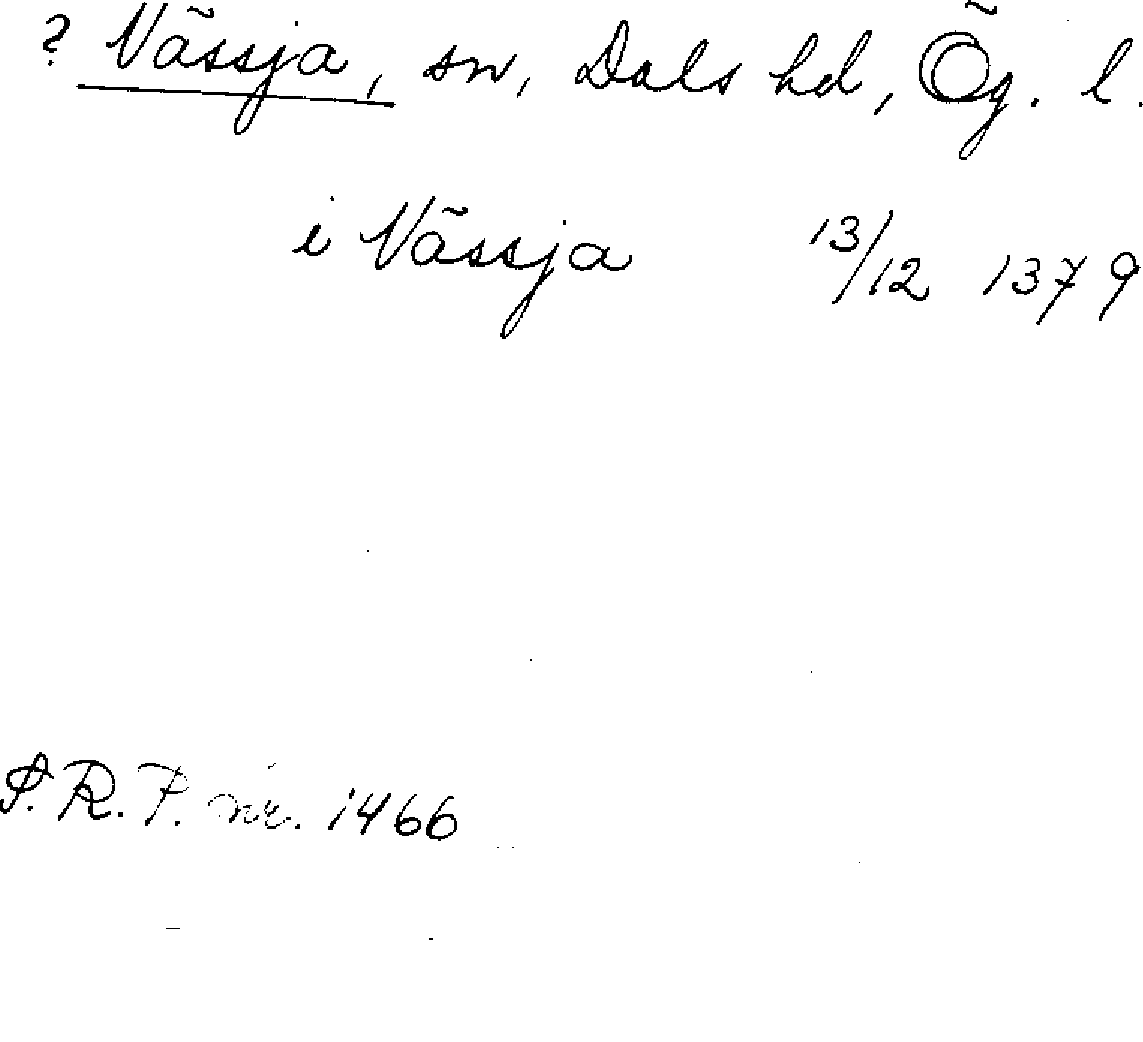 ? Vässja, sn, Dals hd, Ög. l.
i Vässja 13/12 1379
S.R.P. nr. 1466